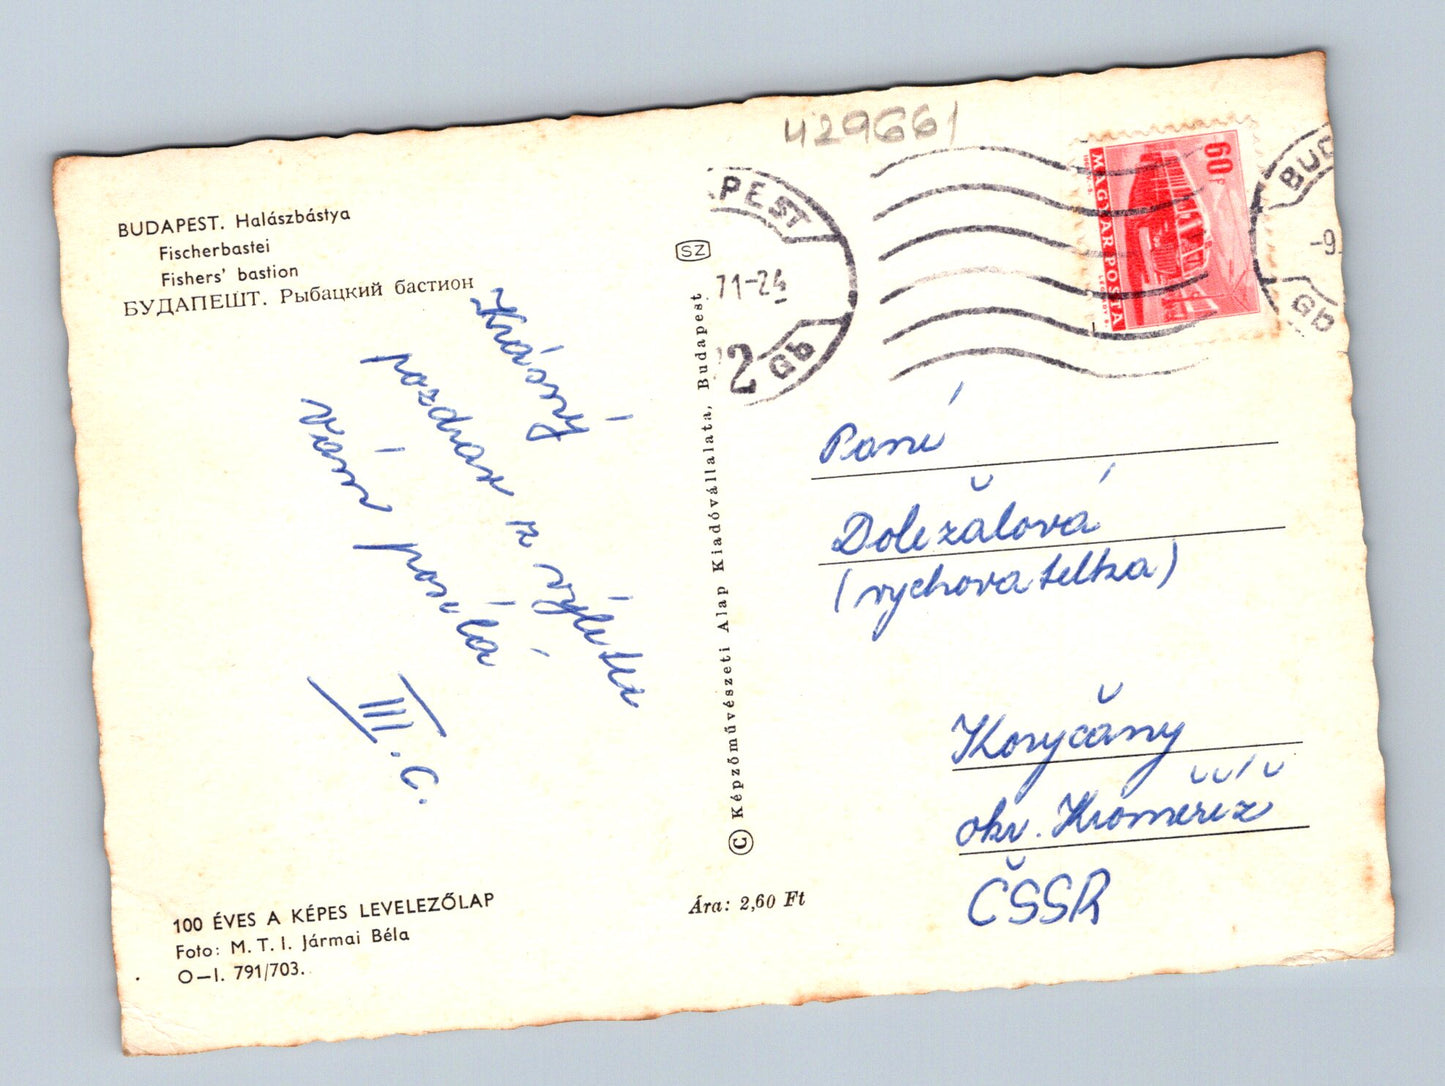 429661
BUDAPEST. Halászbástya
Fischerbastei
Fishers' bastion
БУДАПЕШТ. Рыбацкий бастион
Krásný
pozdrav z výletu
vám posílá
III. C.
100 ÉVES A KÉPES LEVELEZŐLAP
Foto: M. T. I. Jármai Béla
O–I. 791/703.
SZ
© Képzőművészeti Alap Kiadóvállalata, Budapest
Ára: 2,60 Ft
PEST
71-24
2
60f
MAGYAR POSTA
BUD
-9.
Paní
Doležalová
(vychovatelka)
Koryčany
okr. Kroměříž
ČSSR